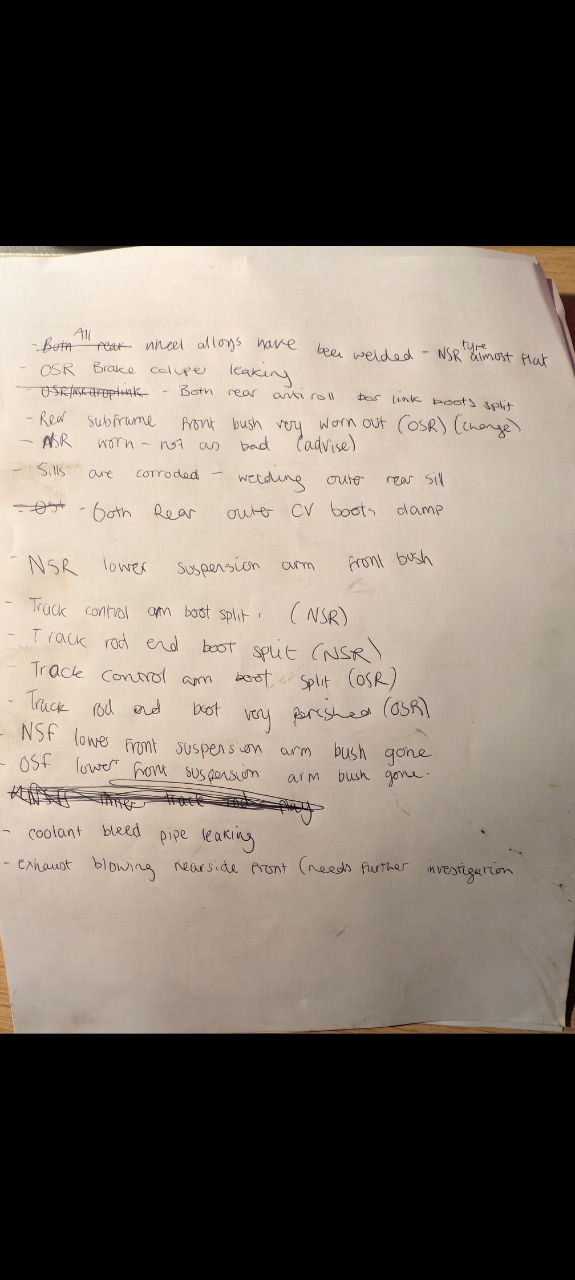 All
- Both rear wheel alloys have been welded - NSR tyre almost flat
- OSR Brake caliper leaking
- OSR/NSR droplink - Both rear anti roll bar link boots split
- Rear subframe front bush very worn out (OSR) (change)
- NSR worn - not as bad (advise)
- Sills are corroded - welding outer rear sill
- OSR - Both Rear outer CV boots damp
- NSR lower suspension arm front bush
- Track control arm boot split. (NSR)
- Track rod end boot split (NSR)
- Track control arm boot split (OSR)
- Track rod end boot very perished (OSR)
- NSF lower front suspension arm bush gone
- OSF lower front suspension arm bush gone.
NSF inner track rod play
- coolant bleed pipe leaking
- exhaust blowing nearside front (needs further investigation